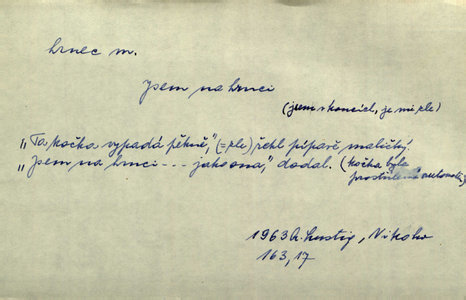 hrnec m.
jsem na hrnci
(jsem v koncích, je mi zle)
„Ta kočka vypadá pěkně," (= zle) řekl pípavě maličký.
„Jsem na hrnci --- jako ona," dodal. (kočka byla
prostřelená automatem)
1963 A. Lustig, Nikoho
163, 17